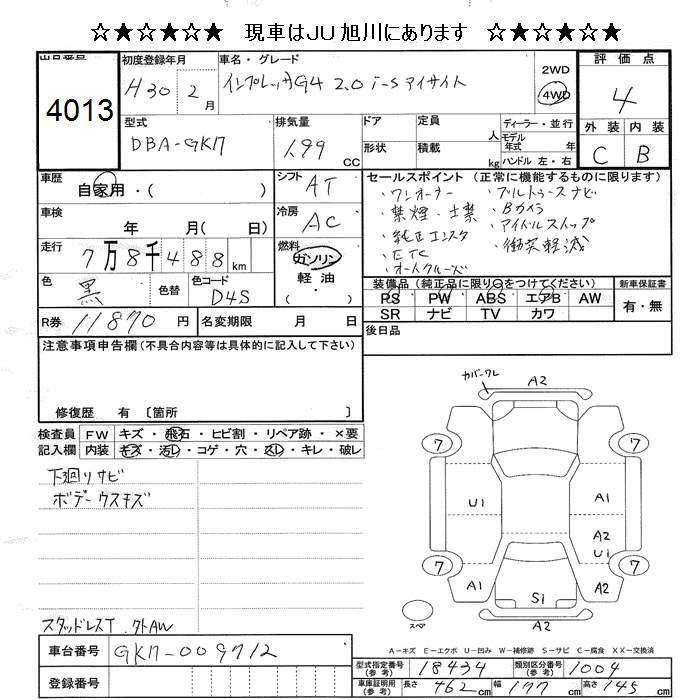 ☆★☆★☆★ 現車はJU旭川にあります ☆★☆★☆★
出品番号 初度登録年月 車名・グレード 評価点
4013 H30 2月 インプレッサG4 2.0 i-S アイサイト 2WD 4WD 4
型式 排気量 ドア 定員 人 ディーラー・並行 外装 内装
DBA-GK7 1.99 CC 形状 積載 kg モデル年式 年 ハンドル 左・右 C B
車歴 自家用・( ) シフト AT セールスポイント (正常に機能するものに限ります)
・ワンオーナー ・ブルートゥースナビ
車検 年 月( 日) 冷房 AC ・禁煙・ ・Bカメラ
・純正エンスタ ・アイドルストップ
走行 7万8千488km 燃料 ガソリン 軽油 ・ETC ・衝突軽減
・オートクルーズ
色 黒 色替 色コード D4S 装備品 (純正品に限り○をつけてください) 新車保証書
PS PW ABS エアB AW 有・無
SR ナビ TV カワ
R券 11870円 名変期限 月 日 後日品
注意事項申告欄(不具合内容等は具体的に記入して下さい)
修復歴 有 〔箇所 〕
カバーワレ A2
検査員記入欄 FW キズ・飛石・ヒビ割・リペア跡・×要
内装 キズ・汚レ・コゲ・穴・スレ・キレ・破レ
7 7
下廻りサビ
ボデーウスキズ
U1 A1
A2
U1
7 7
A1 S1 A2
スペア A2
スタッドレスT
A-キズ E-エクボ U-凹み W-補修跡 S-サビ C-腐食 XX-交換済
車台番号 GK7-009712
型式指定番号(参考) 18434 類別区分番号(参考) 1004
登録番号 車庫証明用(参考) 長さ 462cm 幅 177cm 高さ 145cm